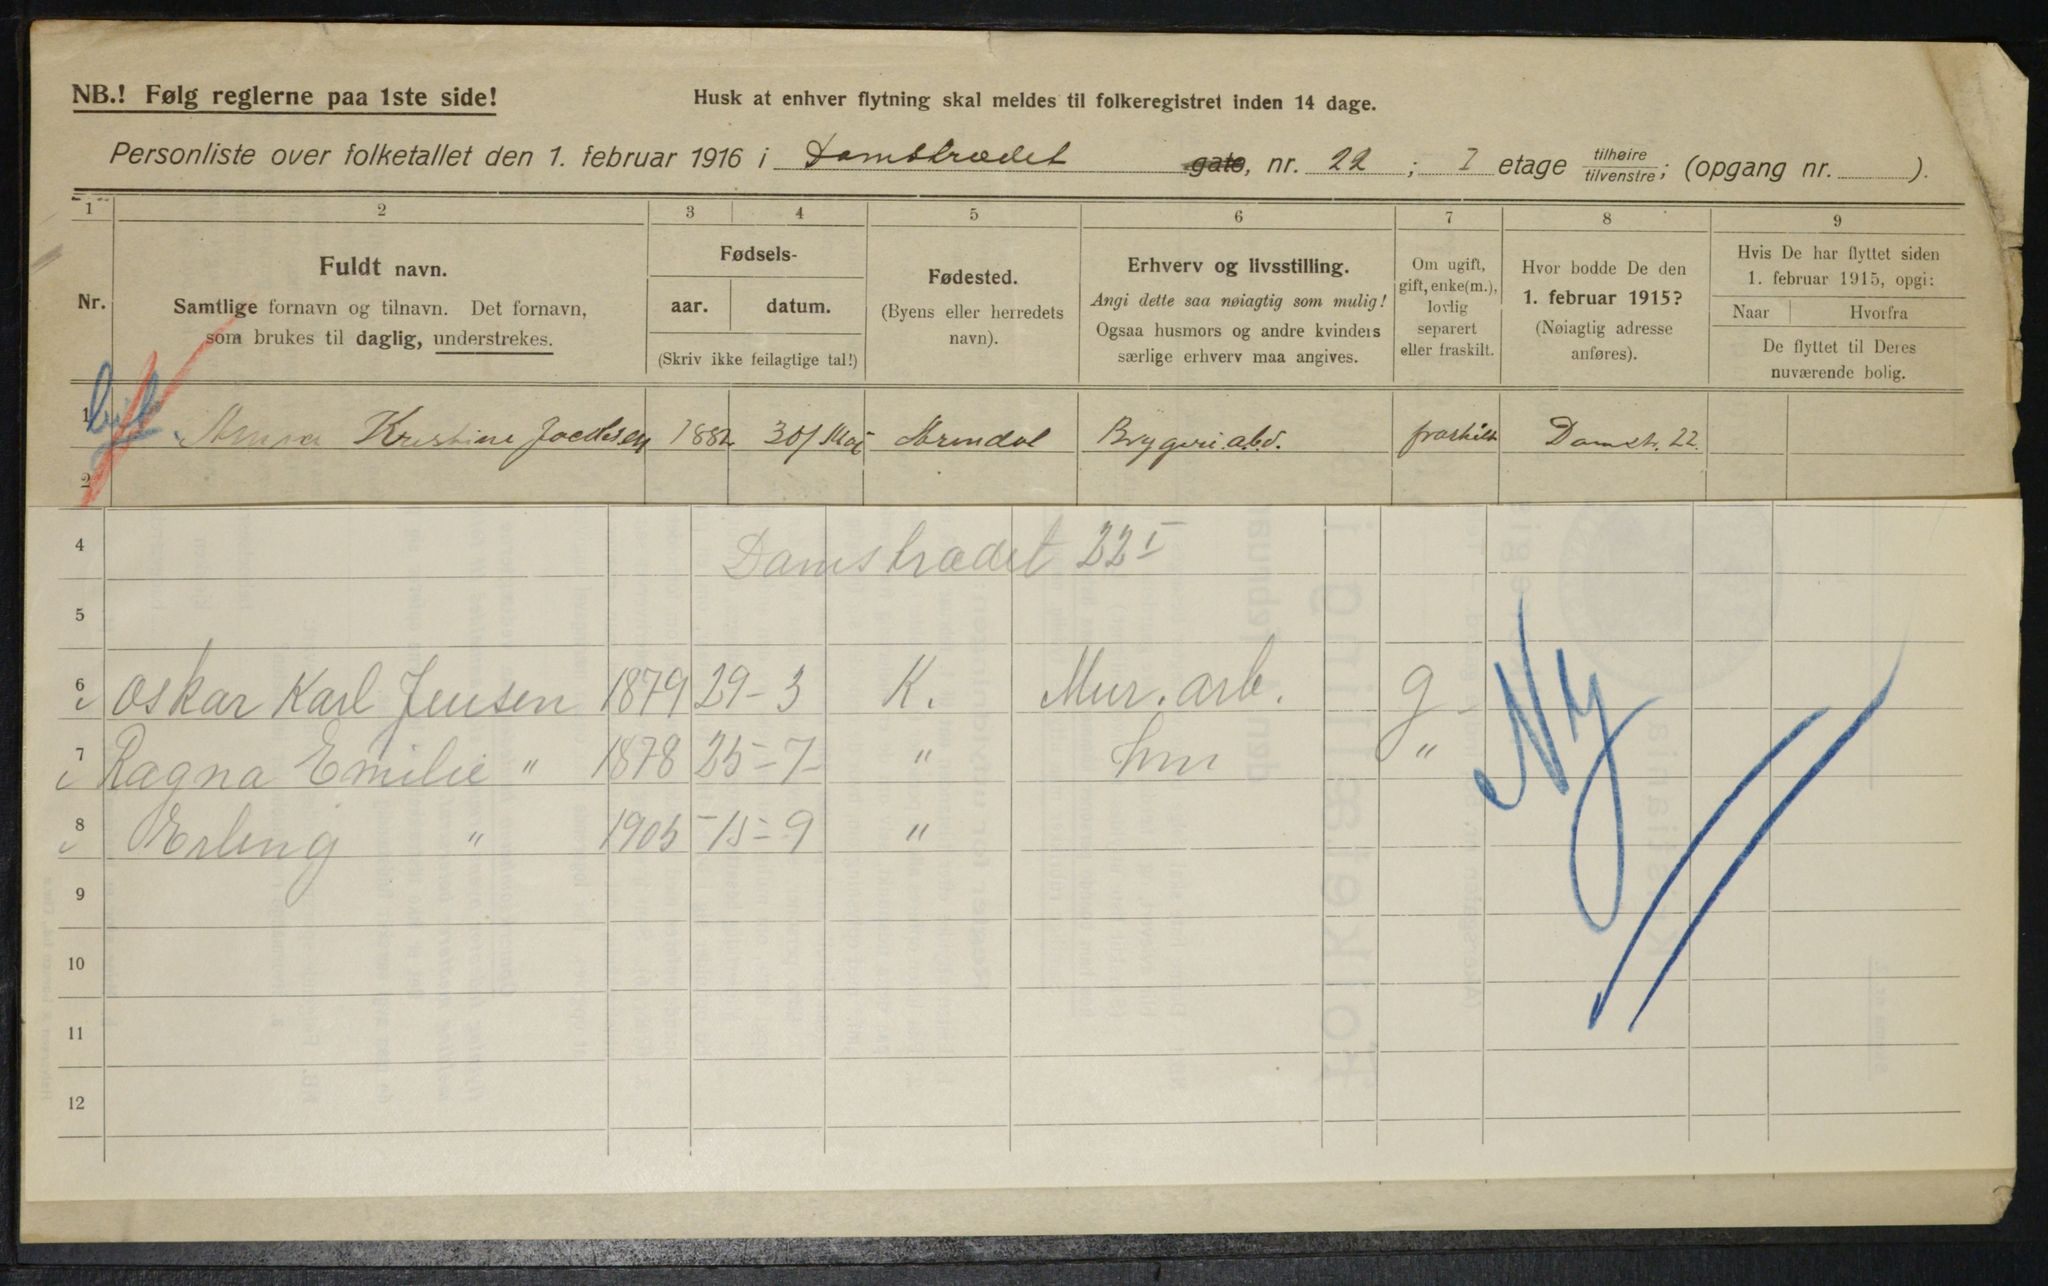 NB.! Følg reglerne paa 1ste side!
Husk at enhver flytning skal meldes til folkeregistret inden 14 dage.
Personliste over folketallet den 1. februar 1916 i Damstrædet gate, nr. 22; I etage tilhøire/tilvenstre; (opgang nr. ).
1 2 3 4 5 6 7 8 9
Nr.
Fuldt navn.
Samtlige fornavn og tilnavn. Det fornavn,
som brukes til daglig, understrekes.
Fødsels-
aar. datum.
(Skriv ikke feilagtige tal!)
Fødested.
(Byens eller herredets
navn).
Erhverv og livsstilling.
Angi dette saa nøiagtig som mulig!
Ogsaa husmors og andre kvinders
særlige erhverv maa angives.
Om ugift,
gift, enke(m.),
lovlig
separert
eller fraskilt.
Hvor bodde De den
1. februar 1915?
(Nøiagtig adresse
anføres).
Hvis De har flyttet siden
1. februar 1915, opgi:
Naar Hvorfra
De flyttet til Deres
nuværende bolig.
1 Kristine 1882 30/ Mai Arendal Bryggeri.abd. fraskilt Damstr. 22.
2
4 Damstrædet 22 I
5
6 Oskar Karl Jensen 1879 29-3 K. Mur. arb. g
7 Ragna Emilie " 1878 25-7 " hm "
8 Erling " 1905 15-9 "
Ny
9
10
11
12